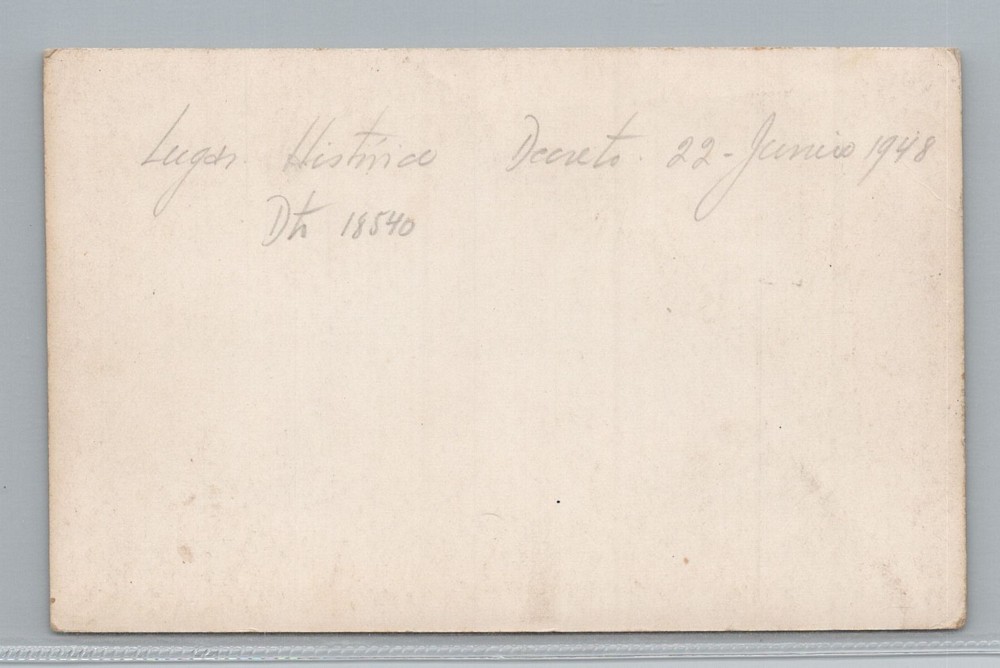 Lugar Histórico Decreto. 22-Junio 1948
Dto 18540